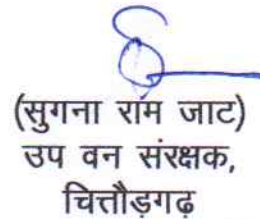 (सुगना राम जाट)
उप वन संरक्षक,
चित्तौड़गढ़